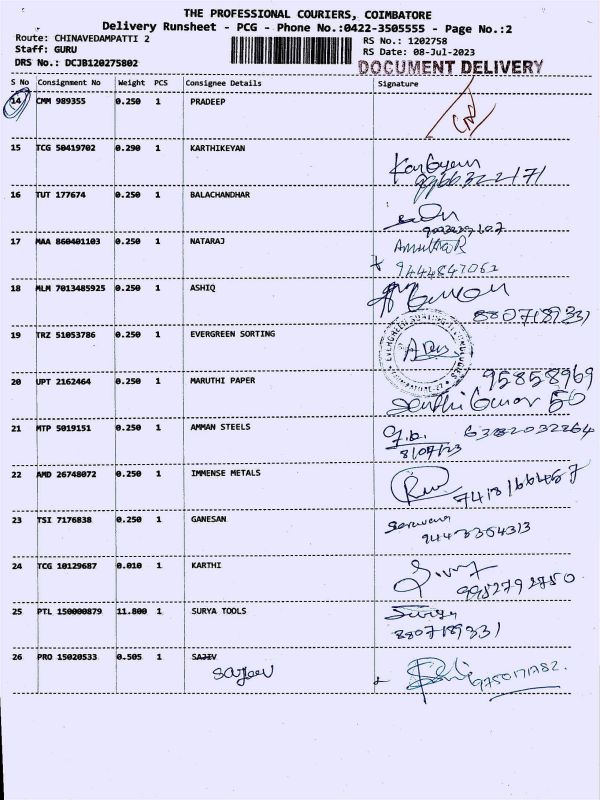 THE PROFESSIONAL COURIERS, COIMBATORE
Delivery Runsheet - PCG - Phone No.:0422-3505555 - Page No.:2
Route: CHINAVEDAMPATTI 2 RS No.: 1202758
Staff: GURU RS Date: 08-Jul-2023
DRS No.: DCJB120275802 DOCUMENT DELIVERY
S No Consignment No Weight PCS Consignee Details Signature
14 CMM 989355 0.250 1 PRADEEP
15 TCG 50419702 0.290 1 KARTHIKEYAN
16 TUT 177674 0.250 1 BALACHANDHAR
17 MAA 860401103 0.250 1 NATARAJ
9444847062
18 MLM 7013485925 0.250 1 ASHIQ
8807189331
19 TRZ 51053786 0.250 1 EVERGREEN SORTING
20 UPT 2162464 0.250 1 MARUTHI PAPER
95858969
50
21 MTP 5019151 0.250 1 AMMAN STEELS
6382032264
8/07/23
22 AMD 26748072 0.250 1 IMMENSE METALS
23 TSI 7176838 0.250 1 GANESAN
24 TCG 10129687 0.010 1 KARTHI
9952792750
25 PTL 150000879 11.800 1 SURYA TOOLS
Surya
8807189331
26 PRO 15020533 0.505 1 SAJIV
Sajeev
9750171782.